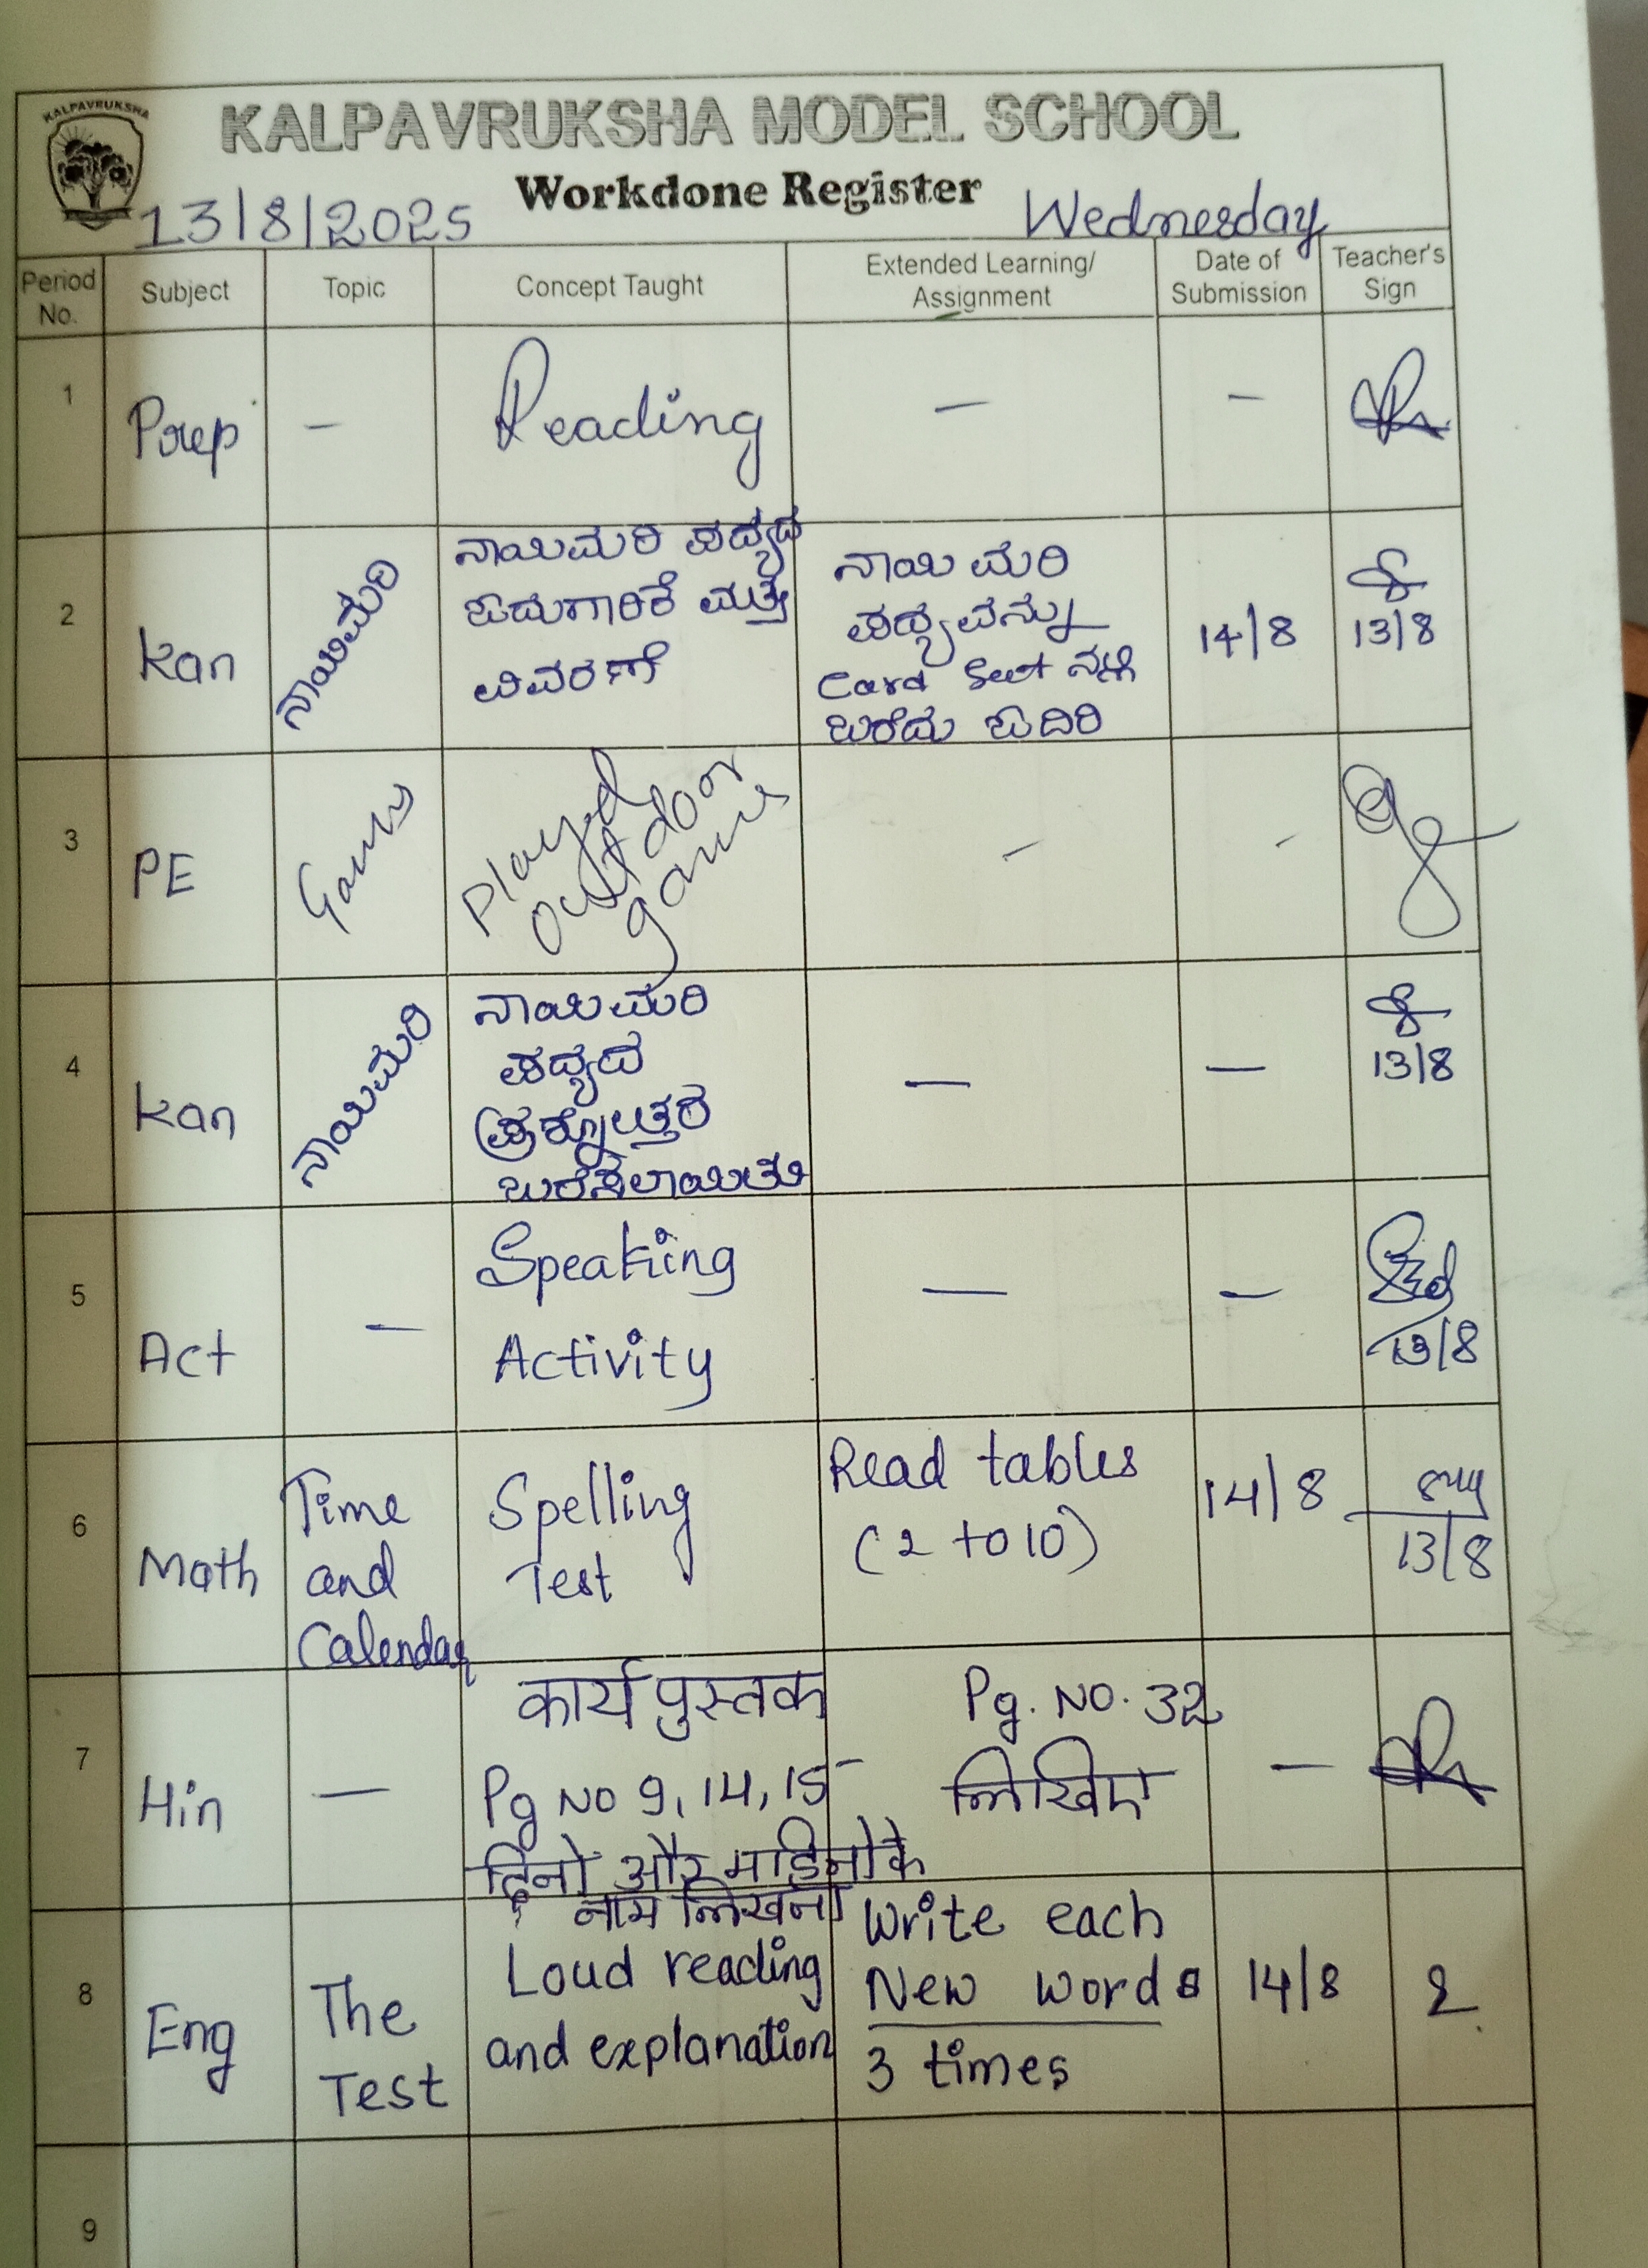 KALPAVRUKSHA
KALPAVRUKSHA MODEL SCHOOL
Workdone Register
13/8/2025
Wednesday
Period No.
Subject
Topic
Concept Taught
Extended Learning/
Assignment
Date of
Submission
Teacher's
Sign
1
Prep
-
Reading
-
-
2
Kan
ನಾಯಿಮರಿ
ನಾಯಿಮರಿ ಪದ್ಯದ
ಓದುಗಾರಿಕೆ ಮತ್ತು
ವಿವರಣೆ
ನಾಯಿ ಮರಿ
ಪದ್ಯವನ್ನು
Card Seet ನಲ್ಲಿ
ಬರೆದು ಓದಿರಿ
14/8
13/8
3
PE
Games
Played
outdoor
games
-
-
4
Kan
ನಾಯಿಮರಿ
ನಾಯಿಮರಿ
ಪದ್ಯದ
ಪ್ರಶ್ನೋತ್ತರ
ಬರೆಸಲಾಯಿತು
-
-
13/8
5
Act
-
Speaking
Activity
-
-
13/8
6
Math
Time
and
Calendar
Spelling
Test
Read tables
(2 to 10)
14/8
13/8
7
Hin
-
कार्य पुस्तक
Pg No 9, 14, 15
दिनों और महिनों के
नाम लिखना
Pg. No. 32
लिखिए
-
8
Eng
The
Test
Loud reading
and explanation
Write each
New words
3 times
14/8
9